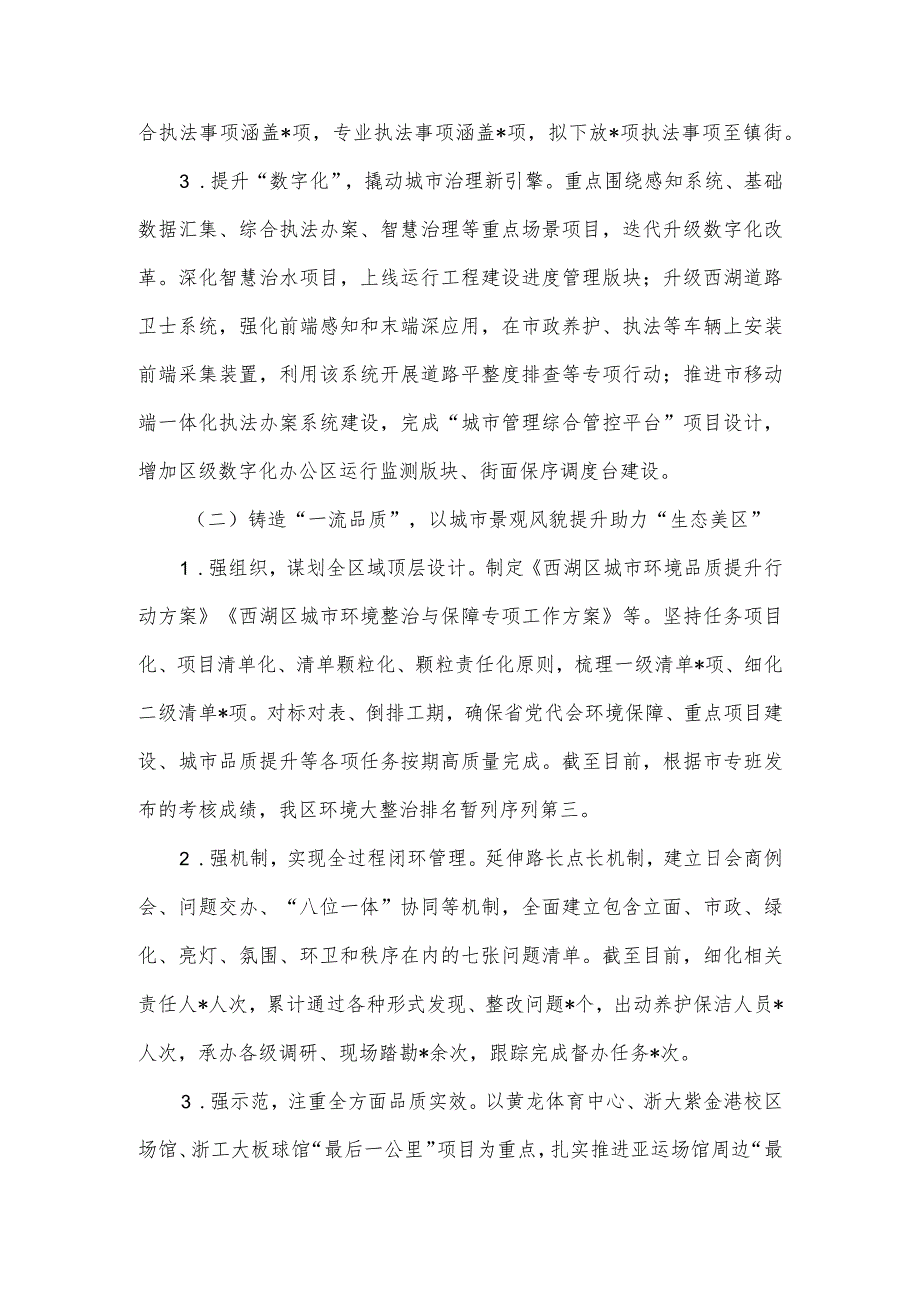 合执法事项涵盖*项，专业执法事项涵盖*项，拟下放*项执法事项至镇街。
3.提升“数字化”，撬动城市治理新引擎。重点围绕感知系统、基础
数据汇集、综合执法办案、智慧治理等重点场景项目，迭代升级数字化改
革。深化智慧治水项目，上线运行工程建设进度管理版块；升级西湖道路
卫士系统，强化前端感知和末端深应用，在市政养护、执法等车辆上安装
前端采集装置，利用该系统开展道路平整度排查等专项行动；推进市移动
端一体化执法办案系统建设，完成“城市管理综合管控平台”项目设计，
增加区级数字化办公区运行监测版块、街面保序调度台建设。
（二）铸造“一流品质”，以城市景观风貌提升助力“生态美区”
1.强组织，谋划全区域顶层设计。制定《西湖区城市环境品质提升行
动方案》《西湖区城市环境整治与保障专项工作方案》等。坚持任务项目
化、项目清单化、清单颗粒化、颗粒责任化原则，梳理一级清单*项、细化
二级清单*项。对标对表、倒排工期，确保省党代会环境保障、重点项目建
设、城市品质提升等各项任务按期高质量完成。截至目前，根据市专班发
布的考核成绩，我区环境大整治排名暂列序列第三。
2.强机制，实现全过程闭环管理。延伸路长点长机制，建立日会商例
会、问题交办、“八位一体”协同等机制，全面建立包含立面、市政、绿
化、亮灯、氛围、环卫和秩序在内的七张问题清单。截至目前，细化相关
责任人*人次，累计通过各种形式发现、整改问题*个，出动养护保洁人员*
人次，承办各级调研、现场踏勘*余次，跟踪完成督办任务*次。
3.强示范，注重全方面品质实效。以黄龙体育中心、浙大紫金港校区
场馆、浙工大板球馆“最后一公里”项目为重点，扎实推进亚运场馆周边“最